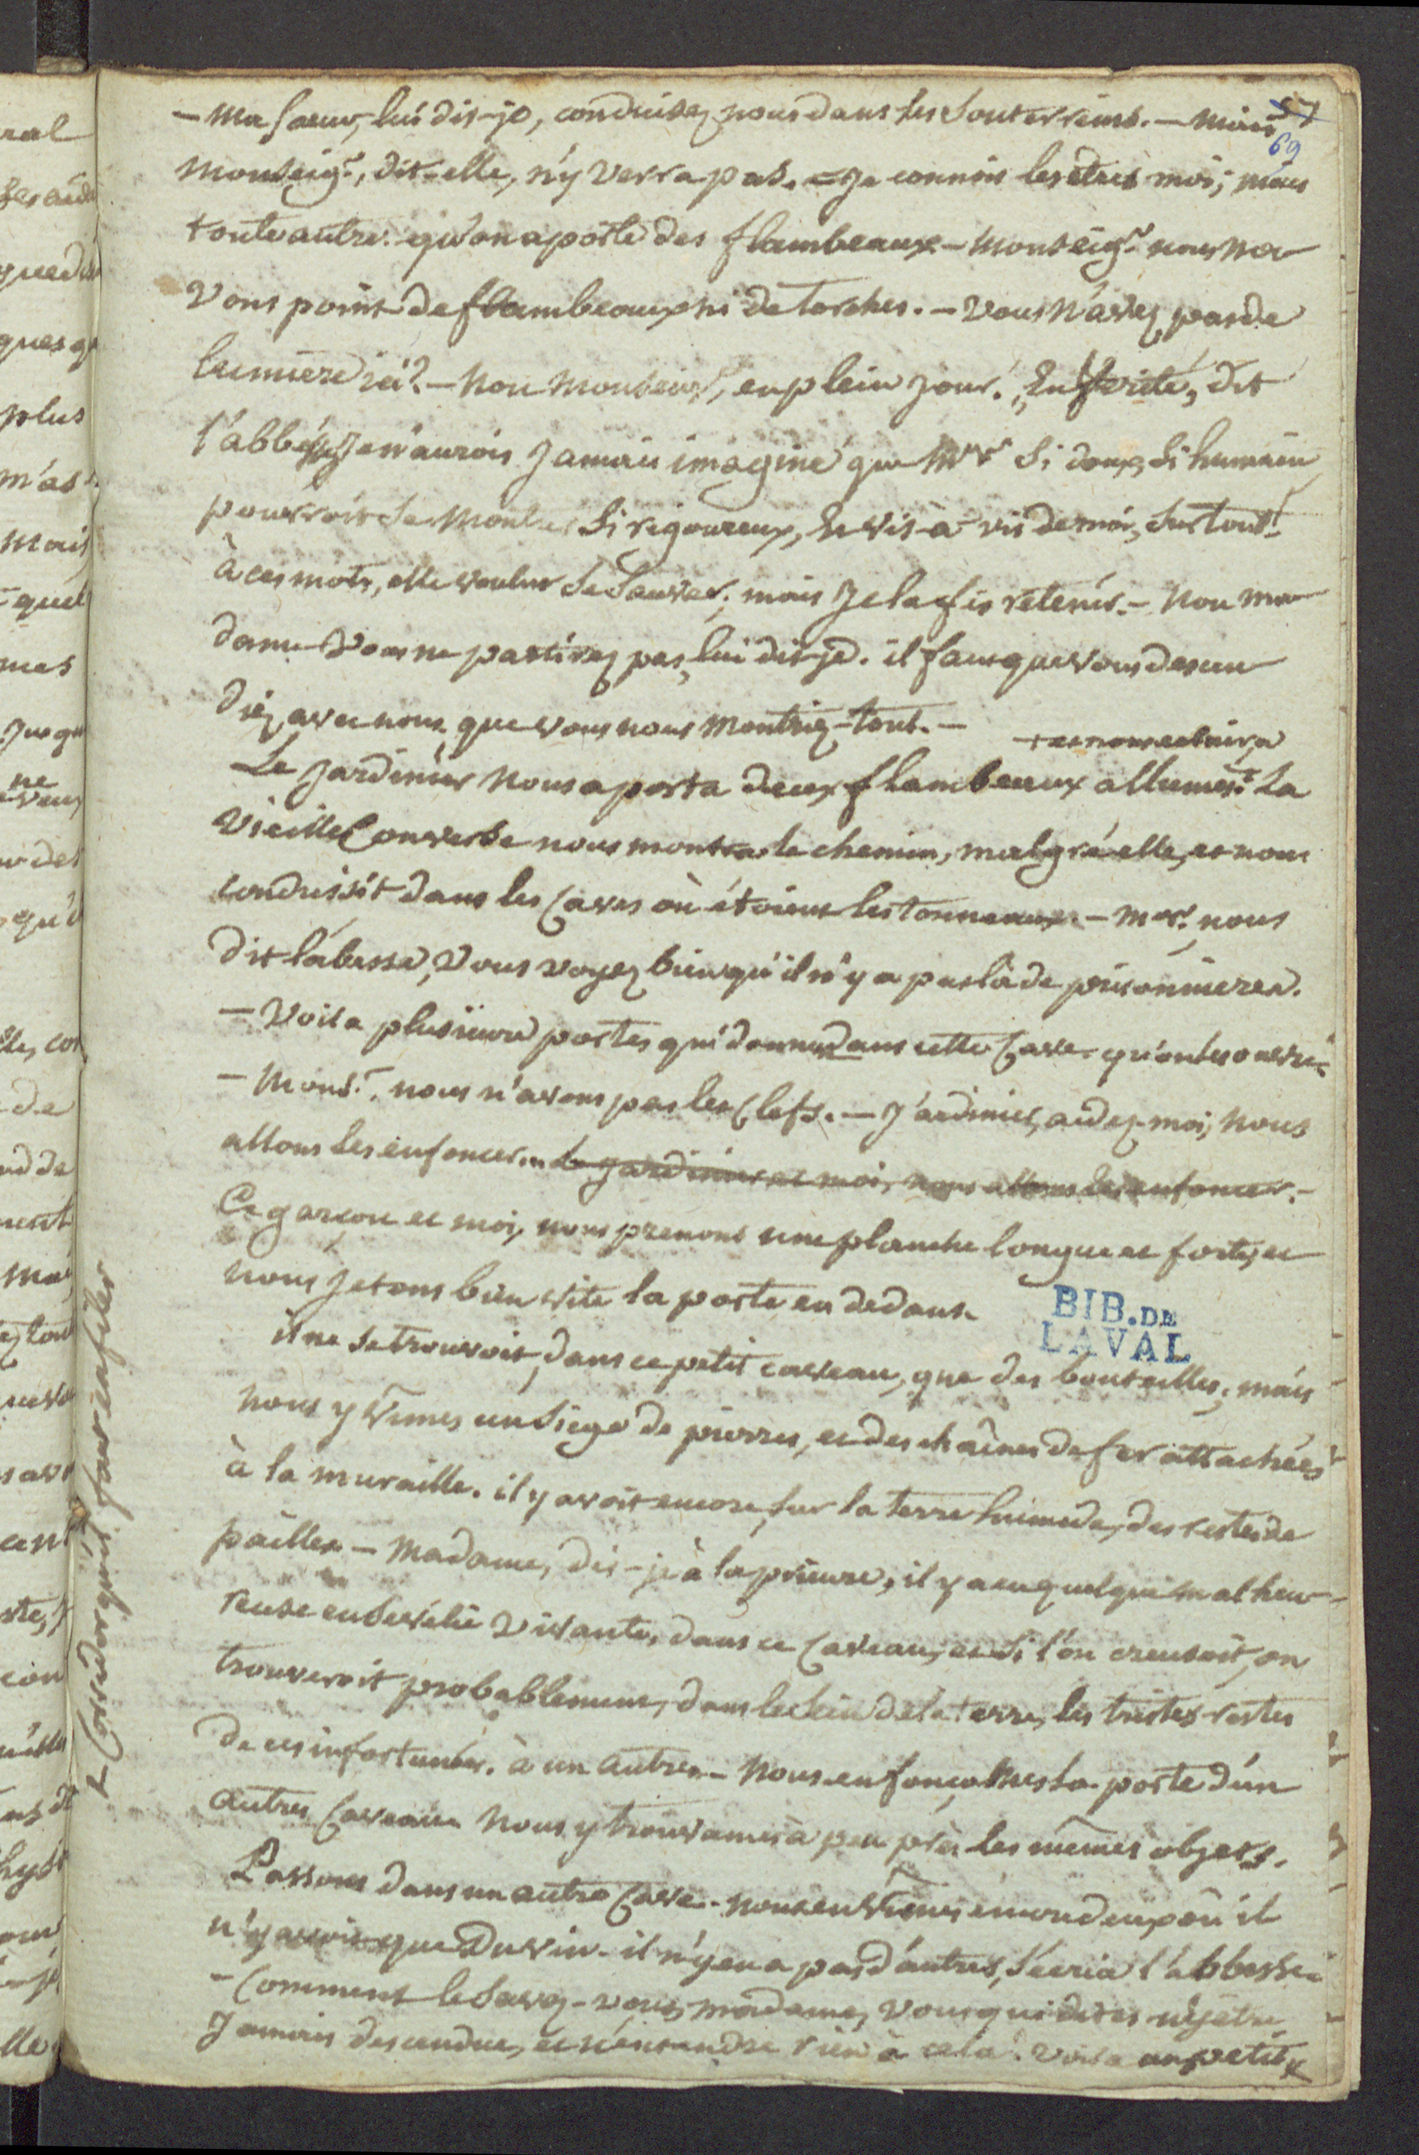 57
69
— Ma sœur, lui dis-je, conduisez nous dans les souterreins. — Mais
Monseigr, dit-elle, n'y verra pas. = Je connois les êtres moi; mais
toute autre. qu'on aporte des flambeaux — Monseigr nous n'a
vons point de flambeaux ni de torches. — Vous n'avez pas de
lumiere ici? — Non Monseigr, en plein jour. En vérité, dit
l'abbesse, je n'aurois jamais imaginé que Mgr si doux, si humain
pourroit se montrer si rigoureux, vis-à-vis de moi, surtout!
à ces mots, elle voulut se sauver; mais je la fis retenir. — Non ma
dame vous ne partirez pas, lui dis-je. il faut que vous descen
diez avec nous, que vous nous montriez tout. —
+ et nous eclaira
Le jardinier nous aporta deux flambeaux allumés + La
vieille Converse nous montra le chemin, malgré elle, et nous
conduisit dans les caves où étoient les tonneaux. — Mgr, nous
dit l'abesse, vous voyez bien qu'il n'y a pas là de prisonnieres.
— Voila plusieurs portes qui donnent dans cette cave. qu'on les ouvre.
— Monsr. nous n'avons pas les clefs. — Jardinier, aidez-moi, nous
allons les enfoncer... Le jardinier et moi, nous allons les enfoncer. —
Ce garçon et moi, nous prenons une planche longue et forte, et
nous jetons bien vite la porte en dedans.
BIB. DE
LAVAL
il ne se trouvoit, dans ce petit caveau, que des bouteilles; mais
nous y vimes un siege de pierres, et des chaînes de fer attachées
à la muraille. il y avoit encore, sur la terre humide, des restes de
pailles — Madame, dis-je à la prieure, il y a eu quelque malheu-
reuse ensevelie vivante, dans ce caveau, et si l'on creusoit, on
trouveroit probablement, dans le sein de la terre, les tristes restes
de ces infortunées. à un autre. — Nous enfonçames la porte d'un
autre caveau. Nous y trouvames à peu près les mêmes objets.
Passons dans un autre cave. nous en vîmes encor deux, où il
n'y avoit que du vin. il n'y en a pas d'autres, s'écria l'abbesse.
— Comment le savez-vous, madame, vous qui dites n'y être
jamais descendue, et n'entendre rien à cela? voila un petit
+ Corridor qu'il faut enfiler